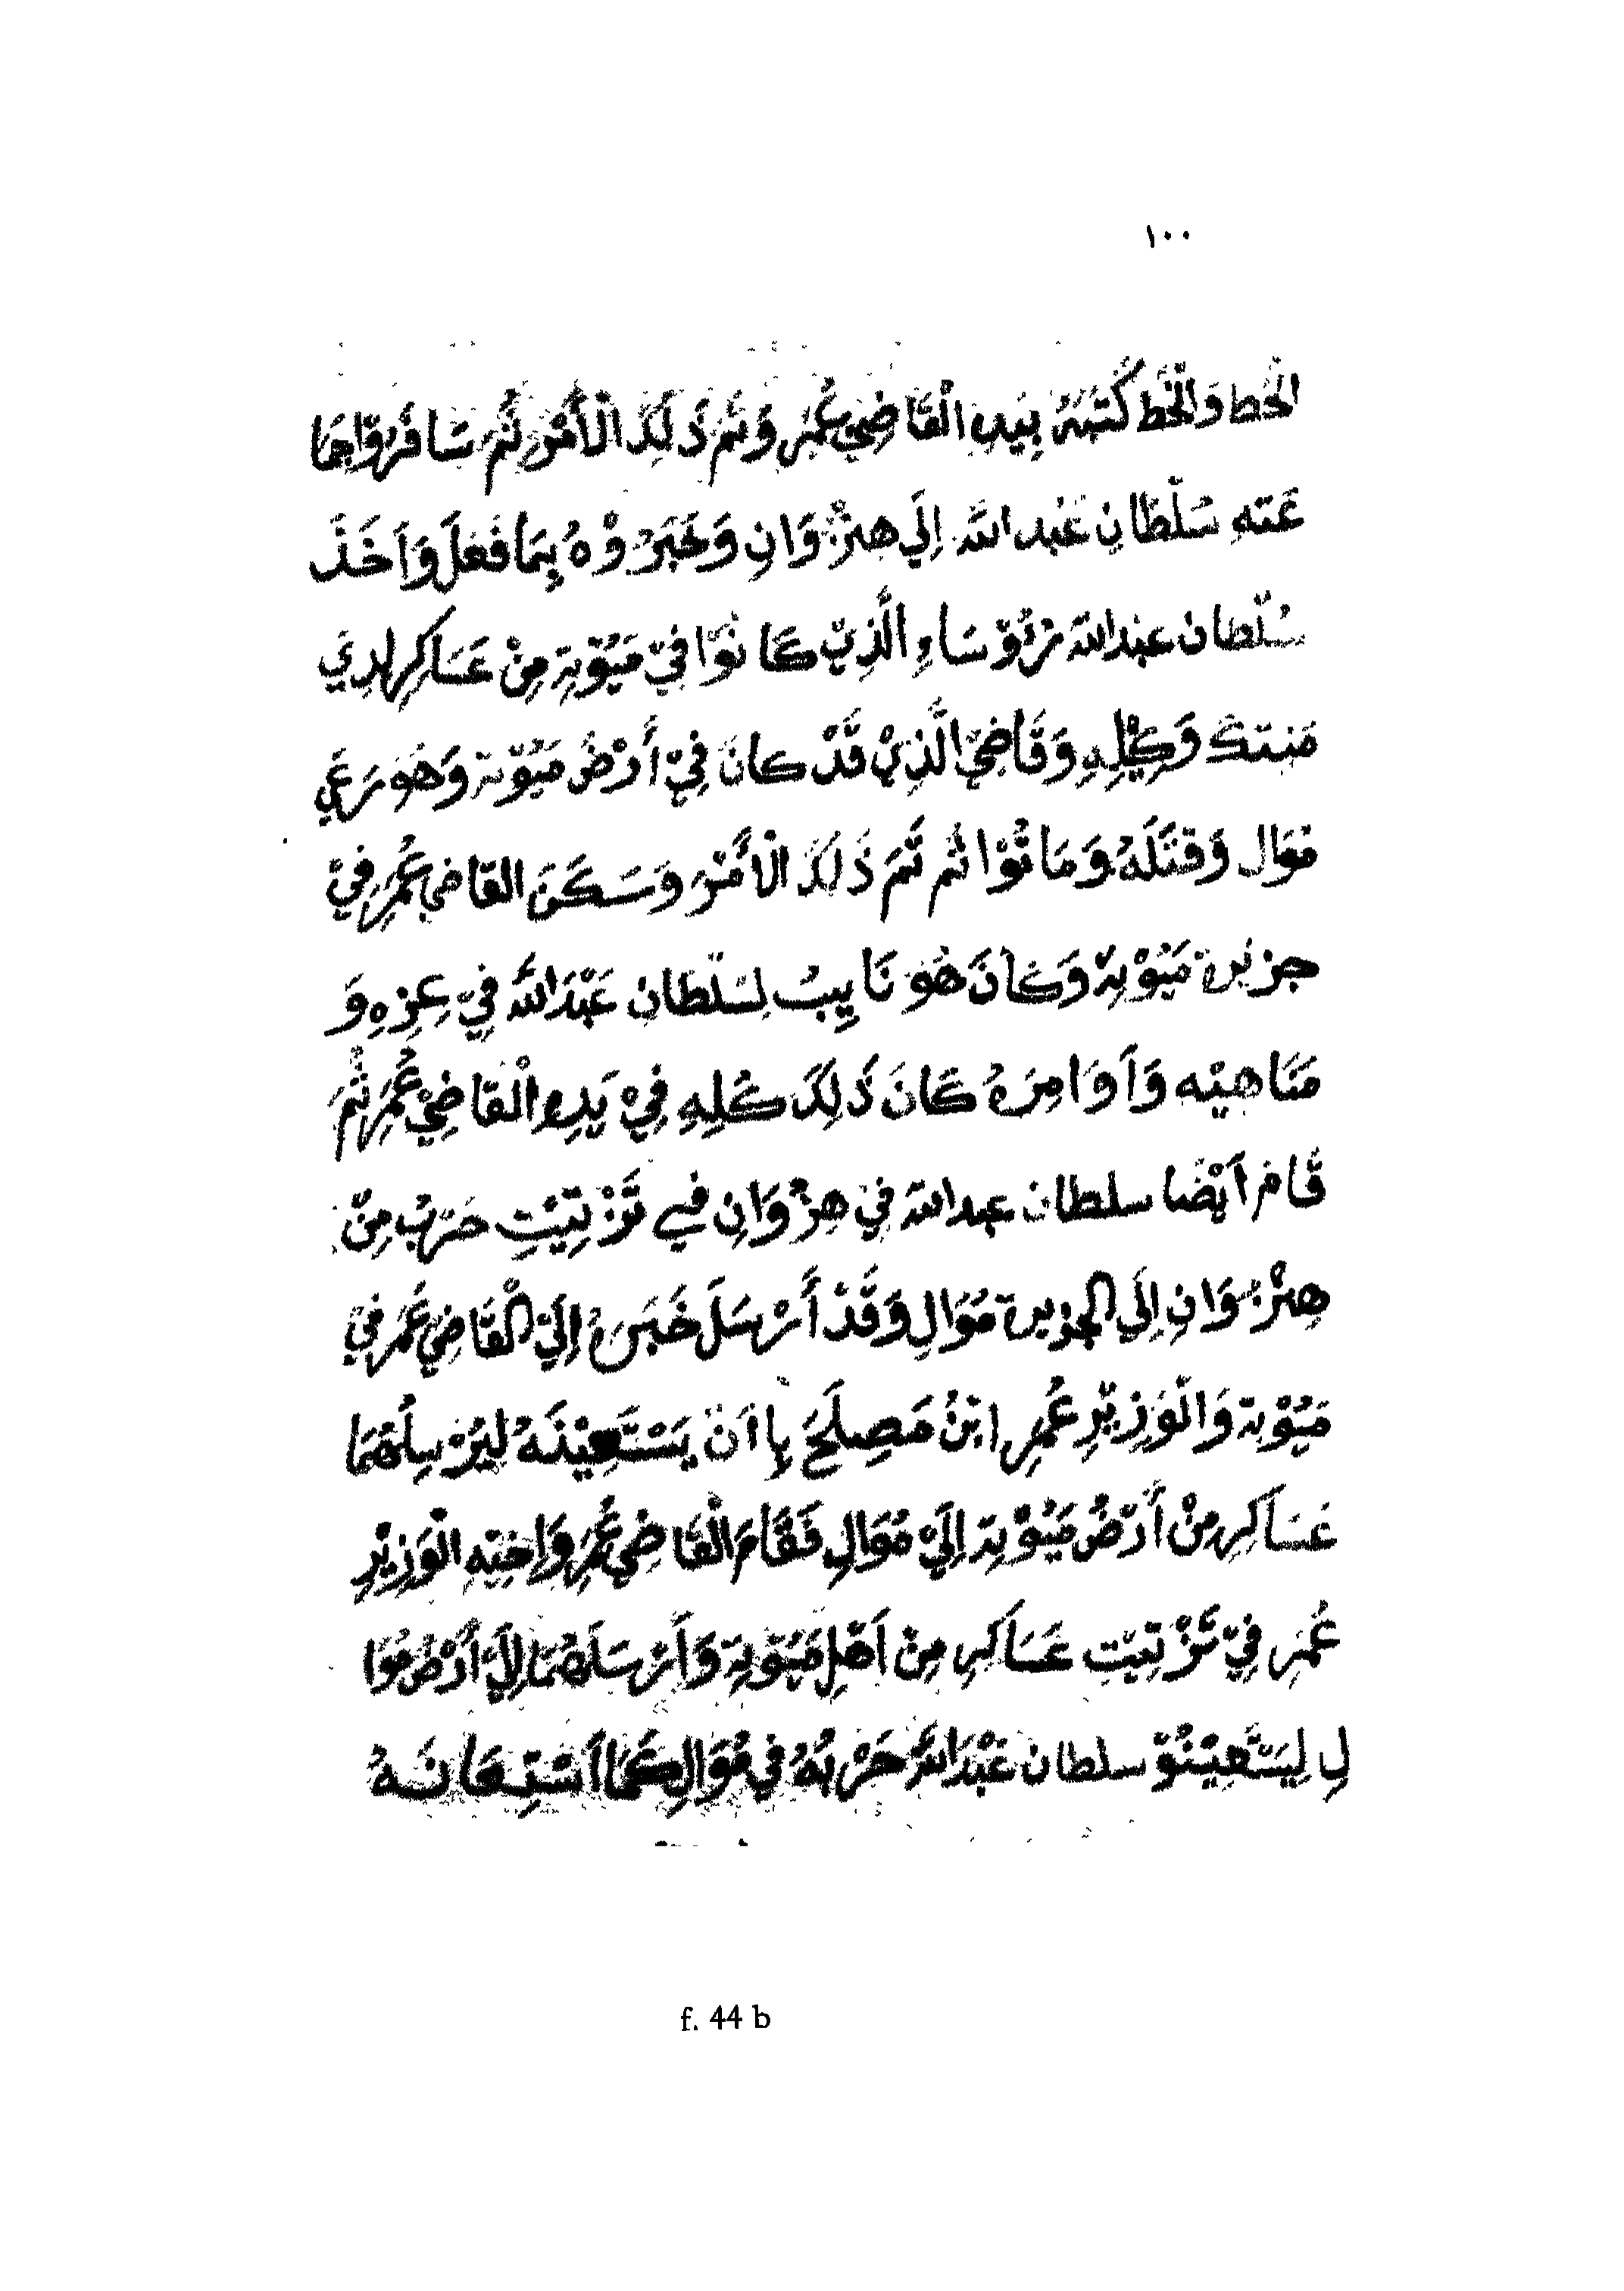 ١٠٠
الْخَط وَالْخَط كُتَبَهُ بِيَدِ الْقَاضِي عُمَر وَتَمَّ ذَلِكَ الْأَمْر ثُمَّ سَافَرُوا جَمَا
عَتِهِ سُلْطَانِ عَبْد اللّه إِلَي هِنْزُوَانِ وَخَبَرُوْهُ بِمَا فَعَلَ وَاَخَذَ
سُلْطَان عبد اللّه رُؤْسَاءِ الَّذِيْ كَانُوْا فِيْ مَيُوْتِة مِنْ عَسَاكِر
وَكِيْلِهِ وَقَاضِيْ الَّذِيْ قَدْ كَانَ فِيْ أَرْضُ مَيُوْتة وَهُوَ
مُوَال وَقَتَلَهُ وَمَاتُوْا ثُم تَمَ ذَلِكَ الْأَمْر وَسَكَنَ القاضي عُمَر فِيْ
جزيرة مَيُوْتِة وَكَانَ هُوَ نَايِبُ لسُلْطَانِ عَبْدَاللّه فِيْ عِزِهِ وَ
مَنَاهِيْه وَاَوَامِرَهُ كَانَ ذَلِكَ كُلِهِ فِيْ يَدِهِ الْقَاضِيْ عُمَر ثُمَ
قَامَ اَيْضَا سلطان عبد اللّه فِيْ هِنْزُوَانِ في تَرْتِيْتِ حَرْبُ مِنْ
هِنْزُوَانِ إِلَي الجزيرة مُوَالِ وَقَدْ أَرْسَلَ خَبَرَهُ إِلَيْ الْقَاضِي عُمَر فِيْ
مَيُوْتة وَالْوَزِيْرِ عُمَر ابْنُ مَصِلَحَ بِاانَ يَسْتَعِيْنَهُ لِيُرْسِلَهُمَا
عَسَاَكِر مِنْ أَرْضُ مَيُوْتِة إِلَيْ مُوَالِ فَقَامَ الْقَاضِي عُمَر وَاخِيْهِ الْوَزِيْرِ
عُمَر فِيْ تَرْتِيْتِ عَسَاكِرِ مِنْ اَهْلِ مَيُوْتِة وَأَرْسَلَهُمَا إِلَيْ أَرْضُ مُوَا
لِ لِيَسْتَعِيْنُوْ سلطان عَبْدَاللّه حَرْبُهُ فِي مُوَالِ كَمَا اَسْتِعَانَهُ
f. 44 b